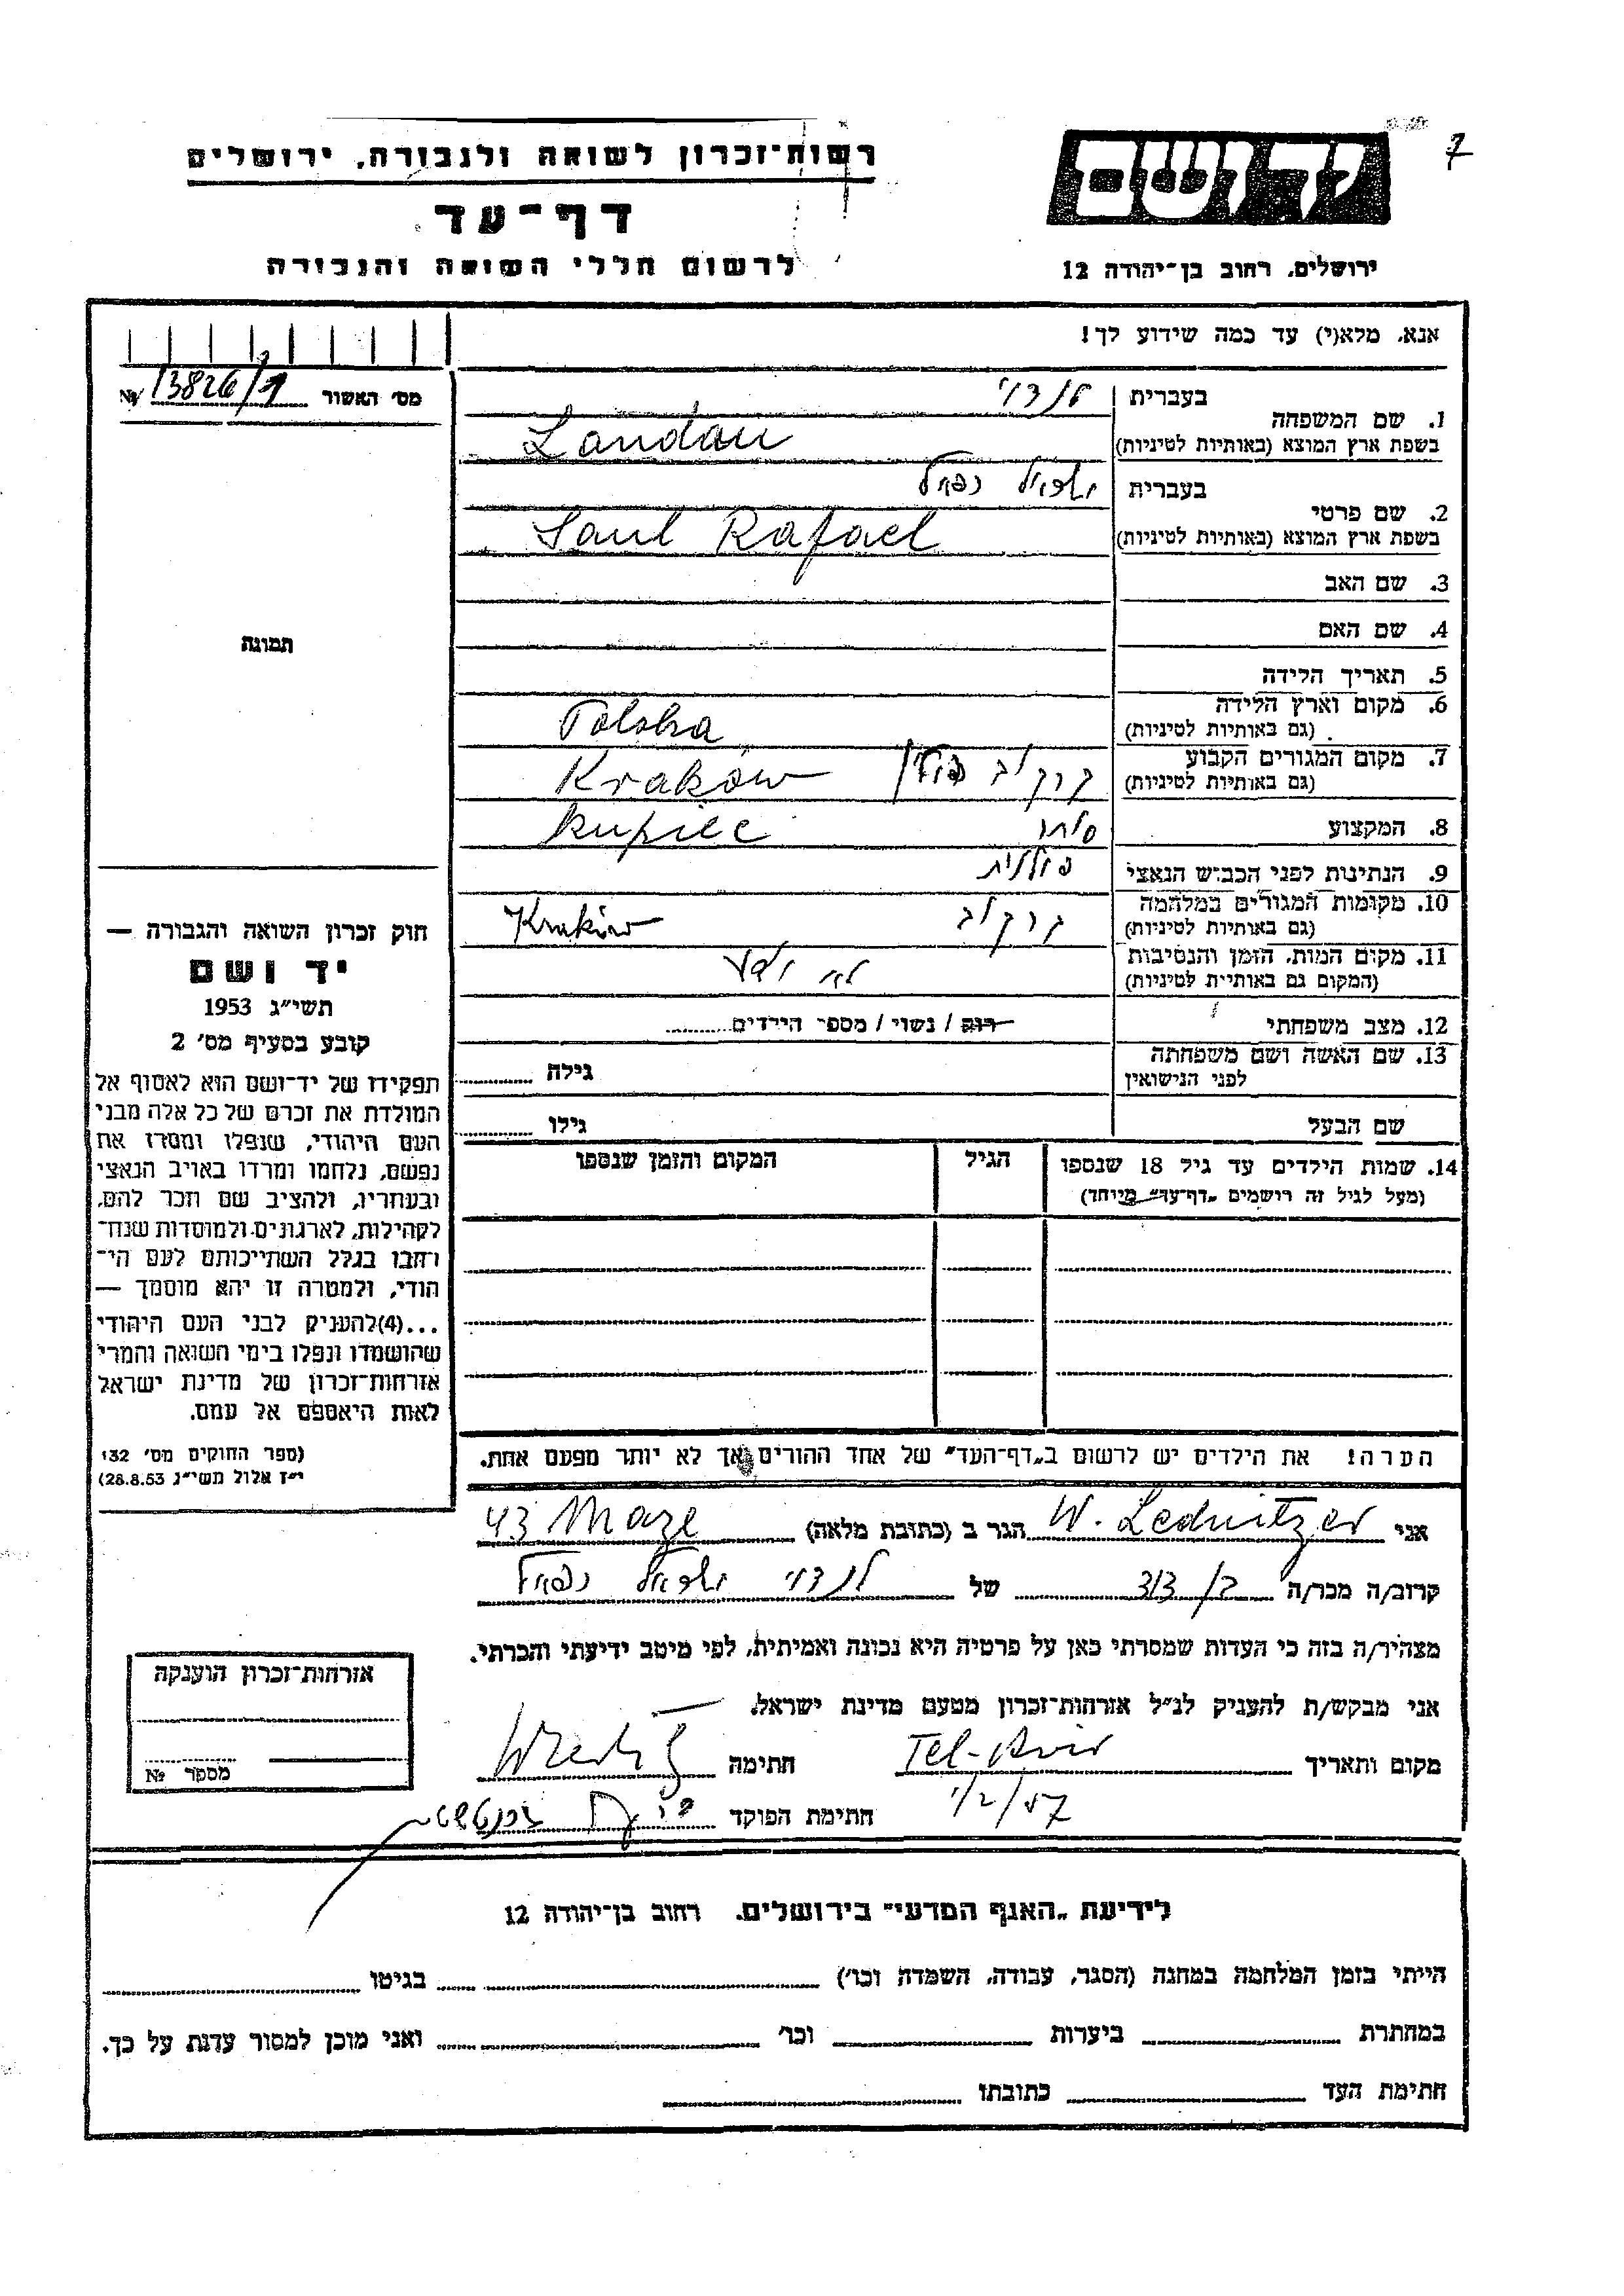 7
רשות־זכרון לשואה ולגבורה, ירושלים
יד ושם
דף־עד
לרשום חללי השואה והגבורה
ירושלים, רחוב בן־יהודה 12
אנא, מלא(י) עד כמה שידוע לך!
מס׳ האשור № 13826/9
1. שם המשפחה
בעברית לנדוי
בשפת ארץ המוצא (באותיות לטיניות) Landau
2. שם פרטי
בעברית רפאל
בשפת ארץ המוצא (באותיות לטיניות) Saul Rafael
3. שם האב
4. שם האם
תמונה
5. תאריך הלידה
6. מקום וארץ הלידה
(גם באותיות לטיניות) Polska
7. מקום המגורים הקבוע
(גם באותיות לטיניות) קרקוב פולין Kraków
8. המקצוע סוחר kupiec
9. הנתינות לפני הכבוש הנאצי פולנית
10. מקומות המגורים במלחמה
(גם באותיות לטיניות) קרקוב Kraków
11. מקום המות, הזמן והנסיבות
(המקום גם באותיות לטיניות) לא ידוע
12. מצב משפחתי רווק / נשוי / מספר הילדים
13. שם האשה ושם משפחתה
לפני הנישואין
גילה
שם הבעל
גילו
14. שמות הילדים עד גיל 18 שנספו
(מעל לגיל זה רושמים „דף־עד״ מייחד)
הגיל
המקום והזמן שנספו
חוק זכרון השואה והגבורה —
יד ושם
תשי״ג 1953
קובע בסעיף מס׳ 2
תפקידו של יד־ושם הוא לאסוף אל
המולדת את זכרם של כל אלה מבני
העם היהודי, שנפלו ומסרו את
נפשם, נלחמו ומרדו באויב הנאצי
ובעוזריו, ולהציב שם וזכר להם,
לקהילות, לארגונים ולמוסדות שנח־
רחבו בגלל השתייכותם לעם הי־
הודי, ולמטרה זו יהא מוסמך —
...(4)להעניק לבני העם היהודי
שהושמדו ונפלו בימי השואה והמרי
אזרחות־זכרון של מדינת ישראל
לאות היאספם אל עמם.
(ספר החוקים מס׳ 132
י״ז אלול תשי״ג 28.8.53)
הערה! את הילדים יש לרשום ב„דף־העד״ של אחד ההורים אך לא יותר מפעם אחת.
אני W. Lednitzer הגר ב (כתובת מלאה) 43 Maze
קרוב/ה מכר/ה של לנדוי רפאל
מצהיר/ה בזה כי העדות שמסרתי כאן על פרטיה היא נכונה ואמיתית, לפי מיטב ידיעתי והכרתי.
אני מבקש/ת להעניק לנ״ל אזרחות־זכרון מטעם מדינת ישראל.
מקום ותאריך Tel-Aviv חתימה
1/2/57 חתימת הפוקד
אזרחות־זכרון הוענקה
מספר №
לידיעת „האגף המדעי״ בירושלים, רחוב בן־יהודה 12
הייתי בזמן המלחמה במחנה (הסגר, עבודה, השמדה וכו׳) בגיטו
במחתרת ביערות וכו׳ ואני מוכן למסור עדות על כך.
חתימת העד כתובתו